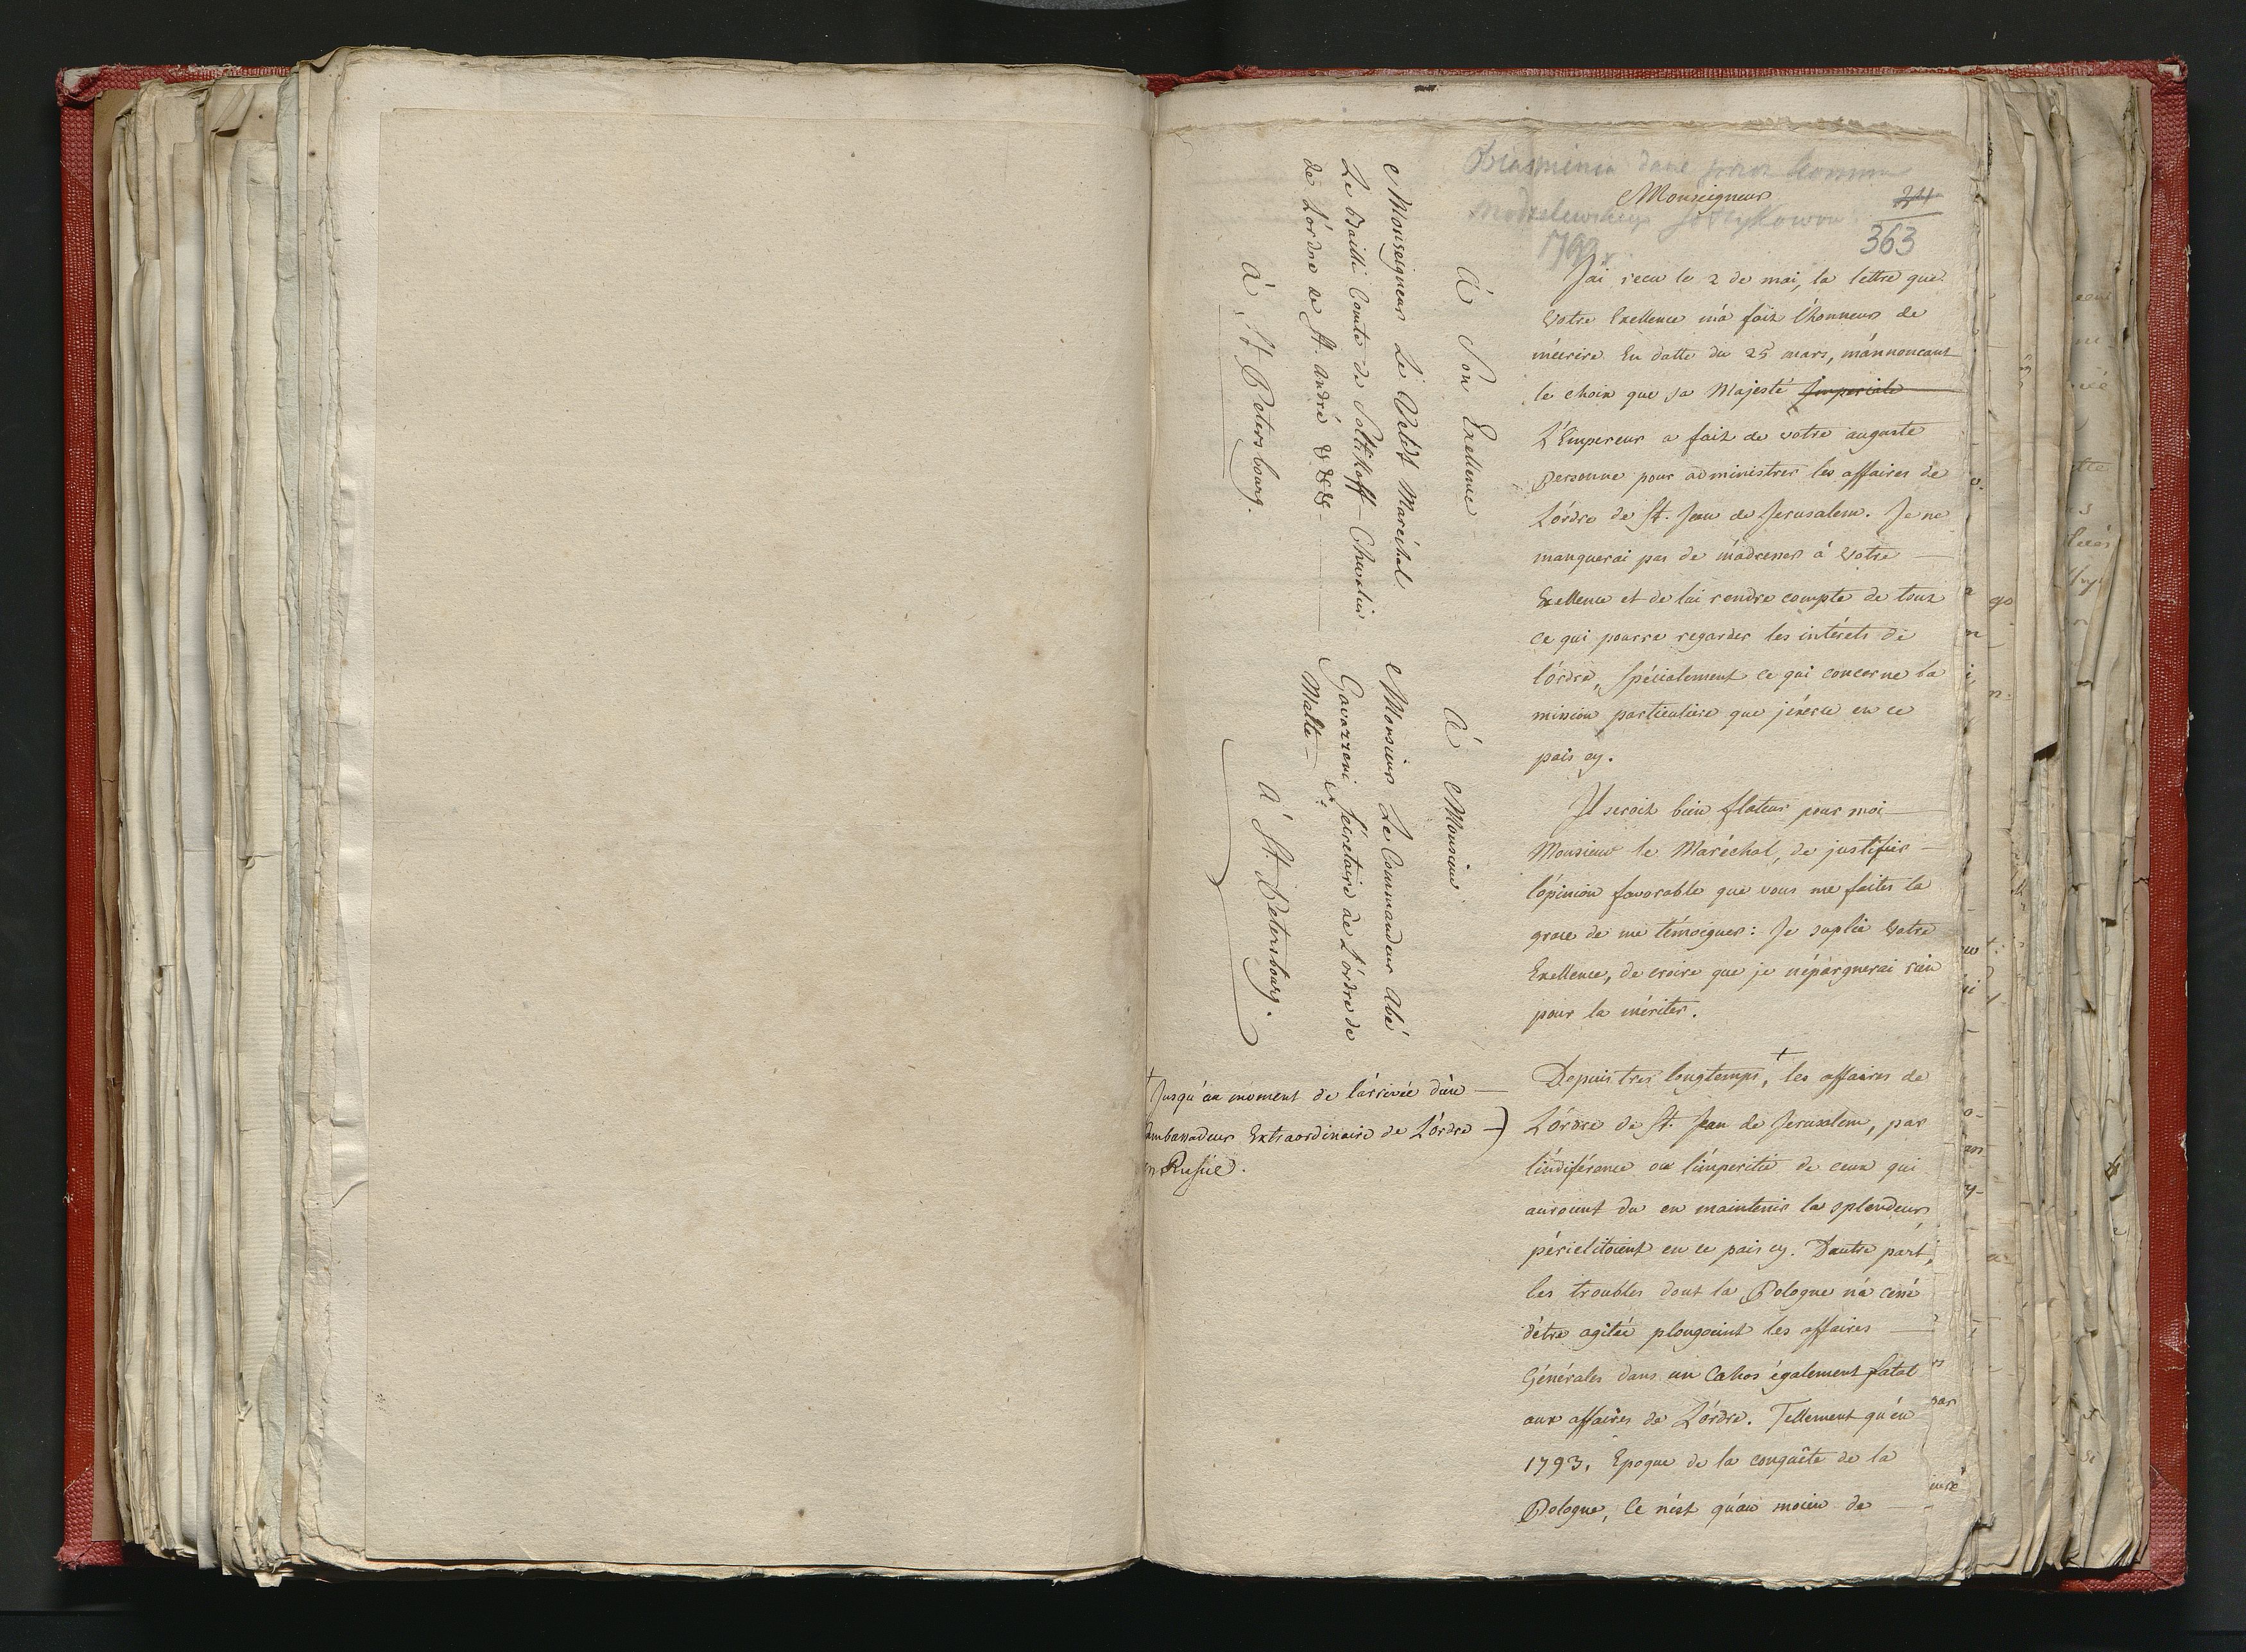 dane przez
Monseigneur
24
1799
363
J'ai recu le 2 de mai, la lettre que
Votre Exellence m'a fait l'honneur de
m'écrire En datte du 25 mars, m'annoncant
le choix que sa Majesté Imperiale
L'Empereur a fait de votre auguste
Personne pour administrer les affaires de
L'órdre de St. Jean de Jerusalem. Je ne
manquerai pas de m'adresser à Votre
Exellence et de lui rendre compte de tout
ce qui pourra regarder les intérets de
l'órdre, Spécialement ce qui concerne la
mission particuliere que j'exerce en ce
païs cy.
Il seroit bien flateur pour moi
Monsieur le Maréchal, de justifier
l'opinion favorable que vous me faites la
grace de me témoigner: Je suplie Votre
Exellence, de croire que je n'épargnerai rien
pour la mériter.
Depuis tres longtemps, + les affaires de
L'órdre de St. Jean de Jerusalem, par
l'indiférance ou l'imperitie de ceux qui
auroient du en maintenir la splendeur,
périclitoient en ce païs cy. D'autre part,
les troubles dont la Pologne n'a cessé
d'étre agitée plongoient les affaires
Générales dans un Cahos également fatal
aux affaires de L'órdre. Tellement qu'en
1793, Epoque de la conquête de la
Pologne, Ce n'est qu'au moien de
À Son Exellence
Monseigneur Le Veldt Maréchal
Le Bailli Comte de Soltikoff - Chevalier
de L'órdre de St. André &&&
à St. Petersbourg.
À Monsieur
Monsieur Le Commandeur Abé
Gavarreni Sécretaire de L'órdre de
Malte
à St. Petersbourg.
+ Jusqu'au moment de l'arrivée d'un
Ambassadeur Extraordinaire de L'órdre
en Russie.